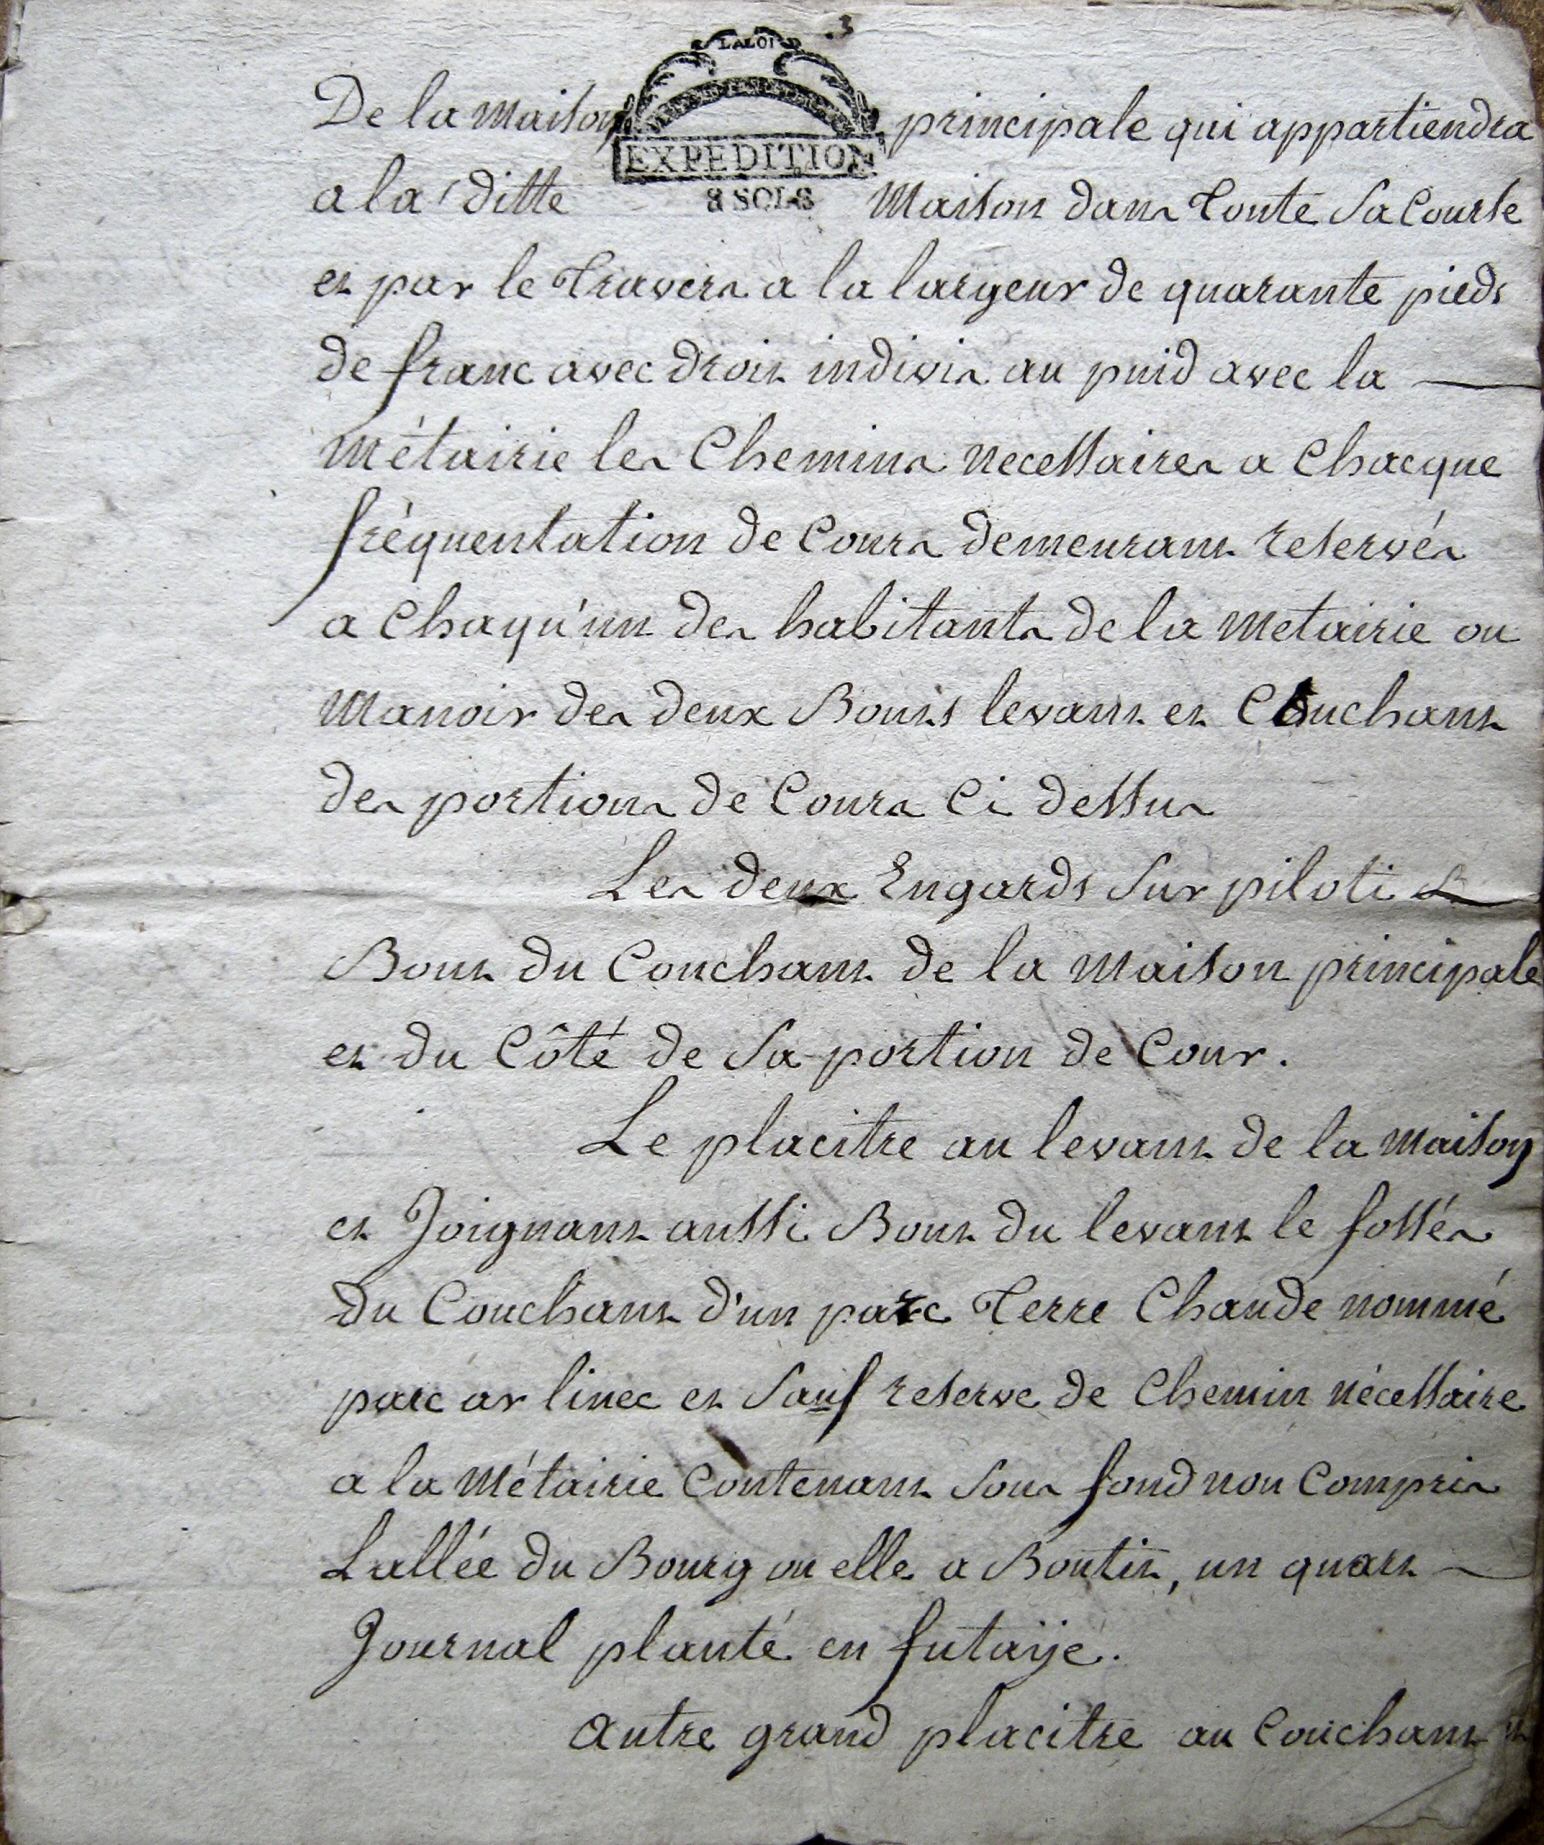 3
LA LOI
De la maison principale qui appartiendra
EXPEDITION
a la ditte Maison dans toute sa Course
8 SOLS
et par le travers a la largeur de quarante pieds
de franc avec droit indivis au puid avec la
métairie les Chemins necessaires a Chacque
fréquentation de Cours demeurant reservés
a Chaqu'un des habitants de la metairie ou
Manoir des deux Bouts levant et Couchant
des portions de Cours Ci dessus
Les deux Engards sur piloti
Bout du Couchant de la maison principale
et du Côté de Sa portion de Cour.
Le placitre au levant de la maison
et Joignant aussi Bout du levant le fossés
du Couchant d'un parc terre Chaude nommé
parc ar linec et Sauf reserve de Chemin nécessaire
a la Métairie Contenant sous fond non Compris
Lallée du Bourg ou elle a Boutit, un quart
Journal planté en futaije.
autre grand placitre au Couchant et